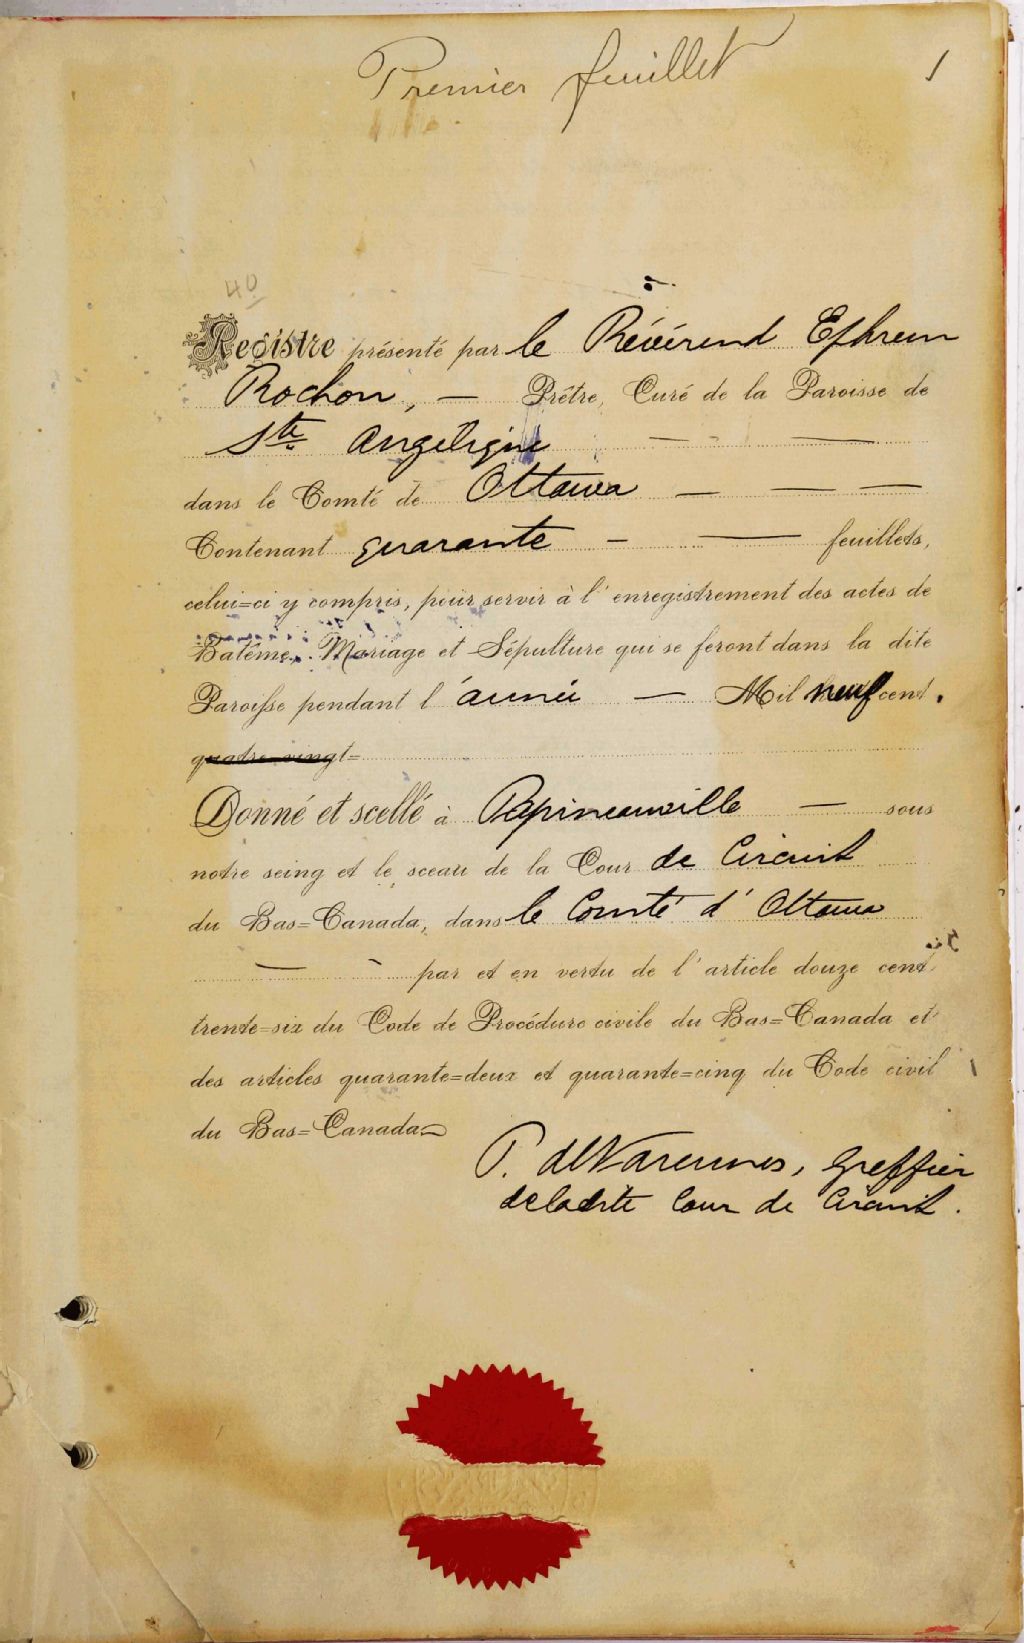 Premier feuillet 1
40
Registre présenté par le Révérend Ephrem
Rochon, — Prêtre, Curé de la Paroisse de
Ste Angélique — —
dans le Comté de Ottawa — — —
Contenant quarante — — feuillets,
celui=ci y compris, pour servir à l'enregistrement des actes de
Batême, Mariage et Sépulture qui se feront dans la dite
Paroisse pendant l'année — Mil neuf cent.
quatre-vingt=
Donné et scellé à Papineauville — sous
notre seing et le sceau de la Cour de Circuit
du Bas=Canada, dans le Comté d'Ottawa
— - par et en vertu de l'article douze cent
trente=six du Code de Procédure civile du Bas=Canada et
des articles quarante=deux et quarante=cinq du Code civil
du Bas=Canada
greffier
de la dite Cour de Circuit.